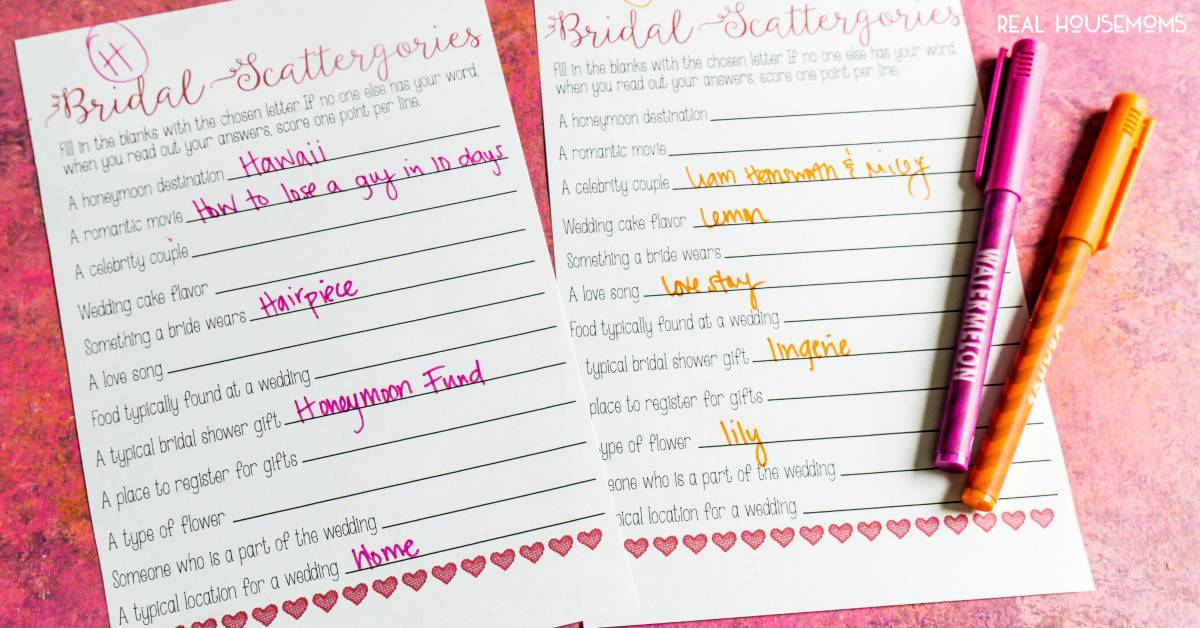 REAL HOUSEMOMS
H
Bridal Scattergories
Fill in the blanks with the chosen letter. If no one else has your word,
when you read out your answers, score one point per line.
A honeymoon destination Hawaii
A romantic movie How to lose a guy in 10 days
A celebrity couple
Wedding cake flavor
Something a bride wears Hairpiece
A love song
Food typically found at a wedding
A typical bridal shower gift Honeymoon Fund
A place to register for gifts
A type of flower
Someone who is a part of the wedding
A typical location for a wedding Home
Bridal Scattergories
Fill in the blanks with the chosen letter. If no one else has your word,
when you read out your answers, score one point per line.
A honeymoon destination
A romantic movie
A celebrity couple Liam Hemsworth & Miley
Wedding cake flavor Lemon
Something a bride wears
A love song Love story
Food typically found at a wedding
typical bridal shower gift lingerie
place to register for gifts
type of flower lily
eone who is a part of the wedding
pical location for a wedding
WATERMELON